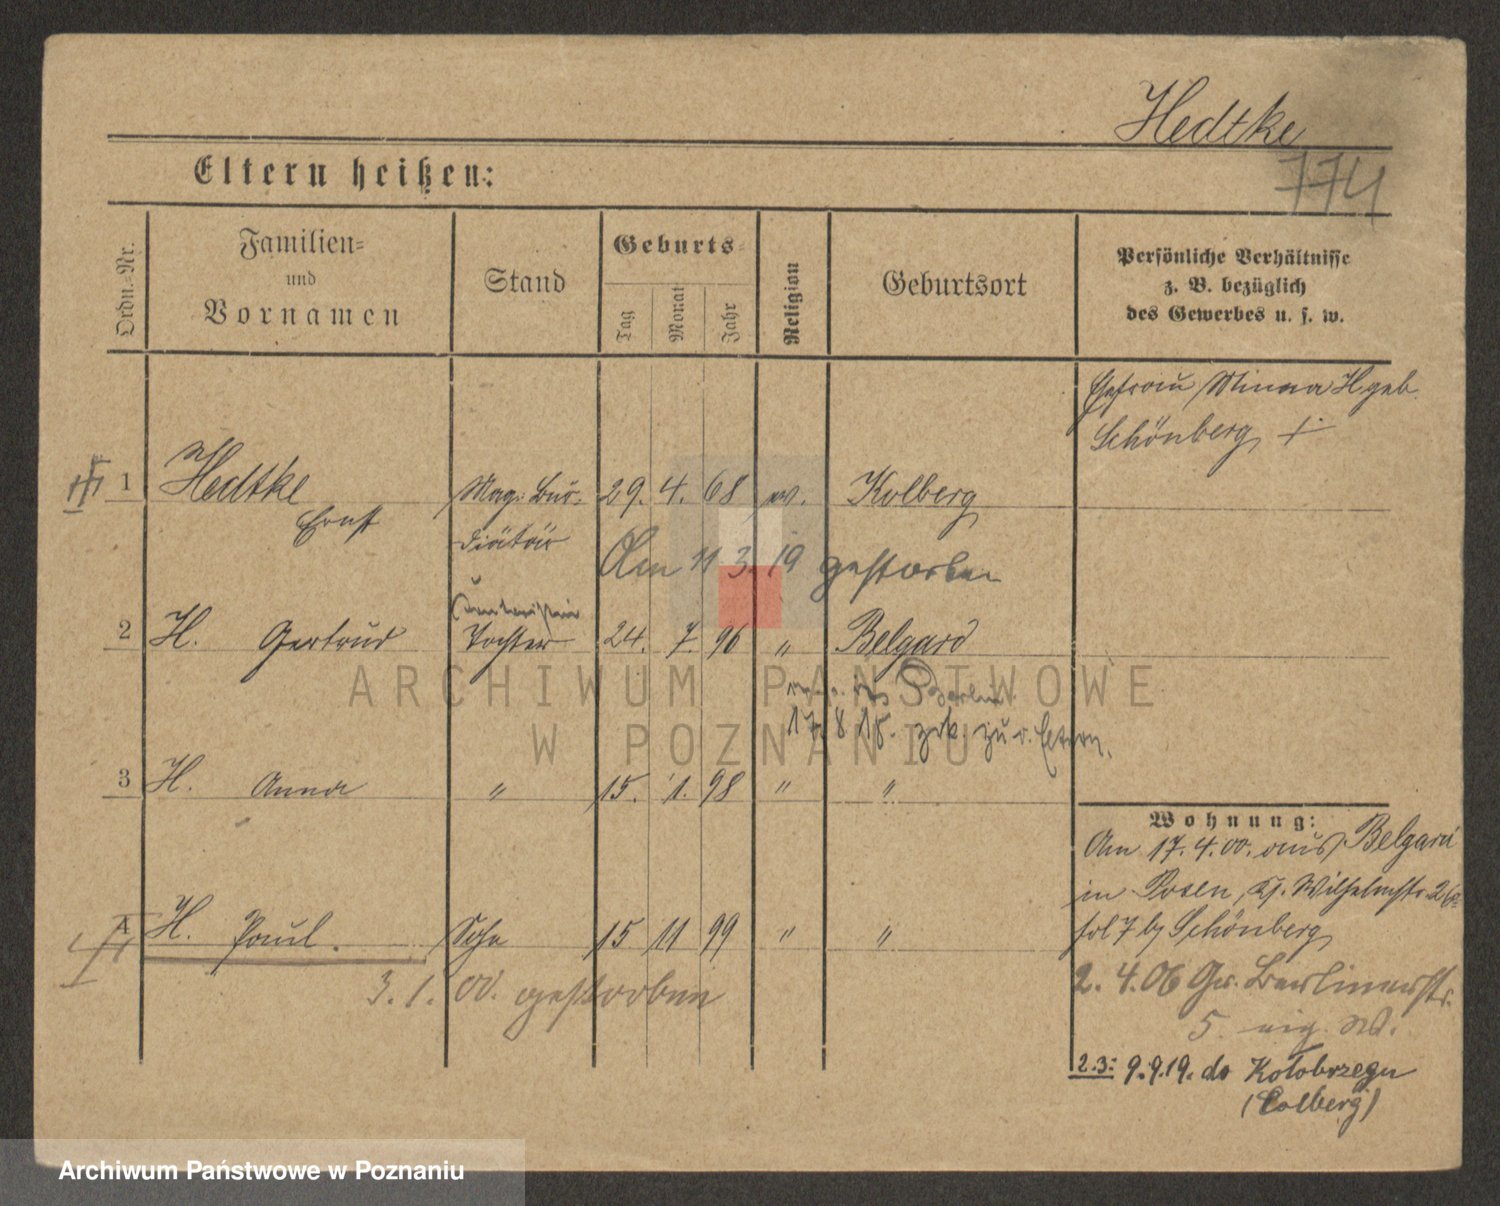 Hedtke
774
Eltern heißen:
Ordn.-Nr.
Familien-
und
Vornamen
Stand
Geburts-
Tag
Monat
Jahr
Religion
Geburtsort
Persönliche Verhältnisse
z. B. bezüglich
des Gewerbes u. s. w.
Ehefrau Minna H. geb.
Schönberg +
1 Hedtke Mag. Bür- 29. 4. 68 ev. Kolberg
Ernst
diätär
Am 11 3. 19 gestorben
2 H. Gertrud Tochter 24. 7. 96 " Belgard
Berlin
17. 8 18. zrk. zu d. Eltern.
3 H. Anna " 15. 1. 98 " "
Wohnung:
Am 17. 4. 00. aus Belgard
in Posen, Wilhelmstr. 26
fol 7 by Schönberg
4 H. Paul. Sohn 15 11 99 " "
3. 1. 00. gestorben
2. 4. 06 Gr. Berlinerstr.
5 eig. W.
2.3: 9.9.19. do Kołobrzegu
(Colberg)
ARCHIWUM PAŃSTWOWE
W POZNANIU
Archiwum Państwowe w Poznaniu